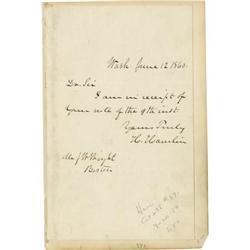 Wash June 12 1860.
Dr. Sir
I am in receipt of
your note of the 9th inst
Yours Truly
H. Hamlin
Mr J W Wright
Boston